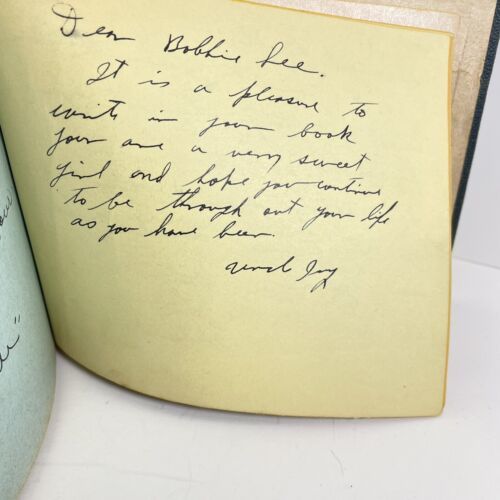 Dear Bobbie Lee.
It is a pleasure to
write in your book
your are a very sweet
girl and hope you continue
to be through out your life
as you have been.
Uncle Jay